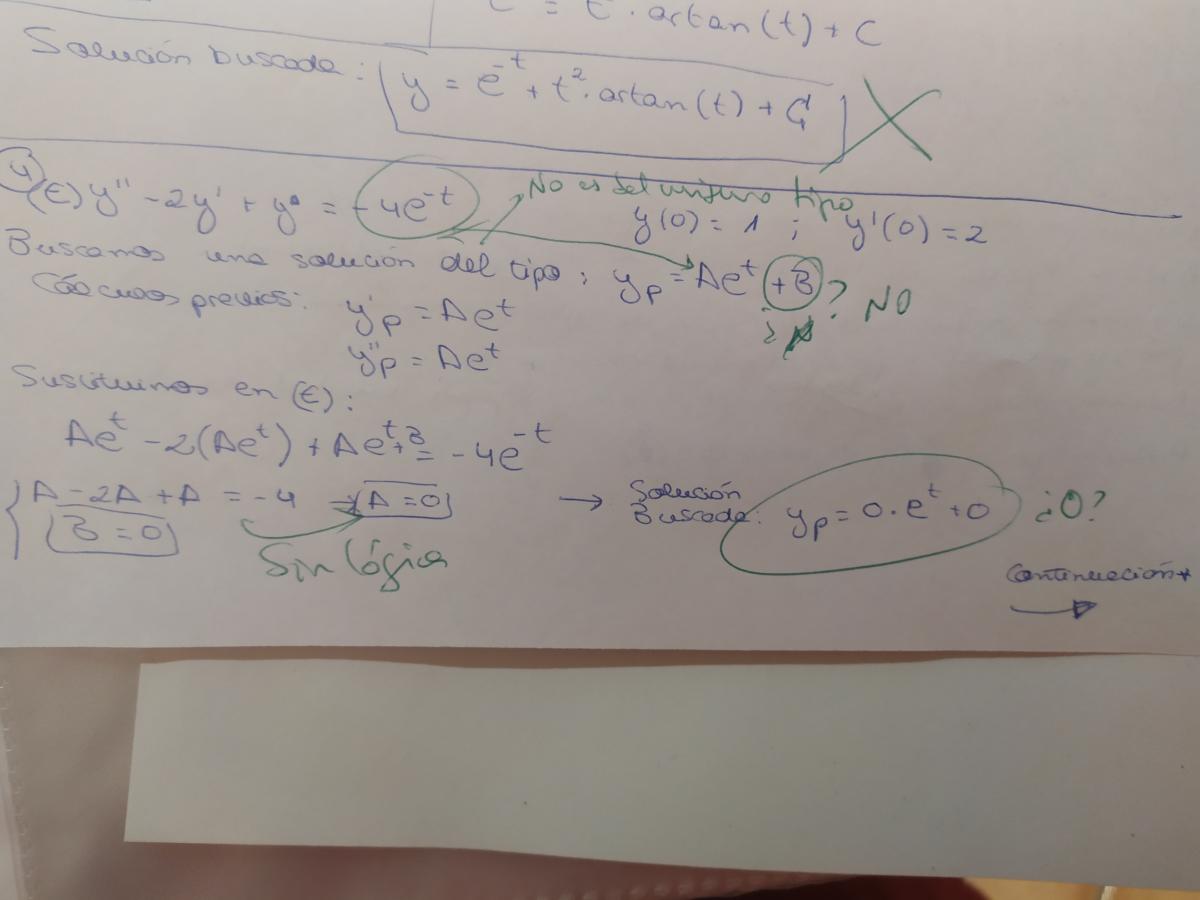 = t · artan(t) + C
Solución buscada: y = e^-t + t^2 · artan(t) + C
4 (E) y'' - 2y' + y = -4e^-t
No es del mismo tipo
y(0) = 1 ; y'(0) = 2
Buscamos una solución del tipo: yp = Ae^t + B ? NO
Cálculos previos: y'p = Ae^t
y''p = Ae^t
Sustituimos en (E):
Ae^t - 2(Ae^t) + Ae^t + B = -4e^-t
A - 2A + A = -4 → A = 0
B = 0
Sin lógica
→ Solución Buscada: yp = 0 · e^t + 0 ¿0?
Continuación
→